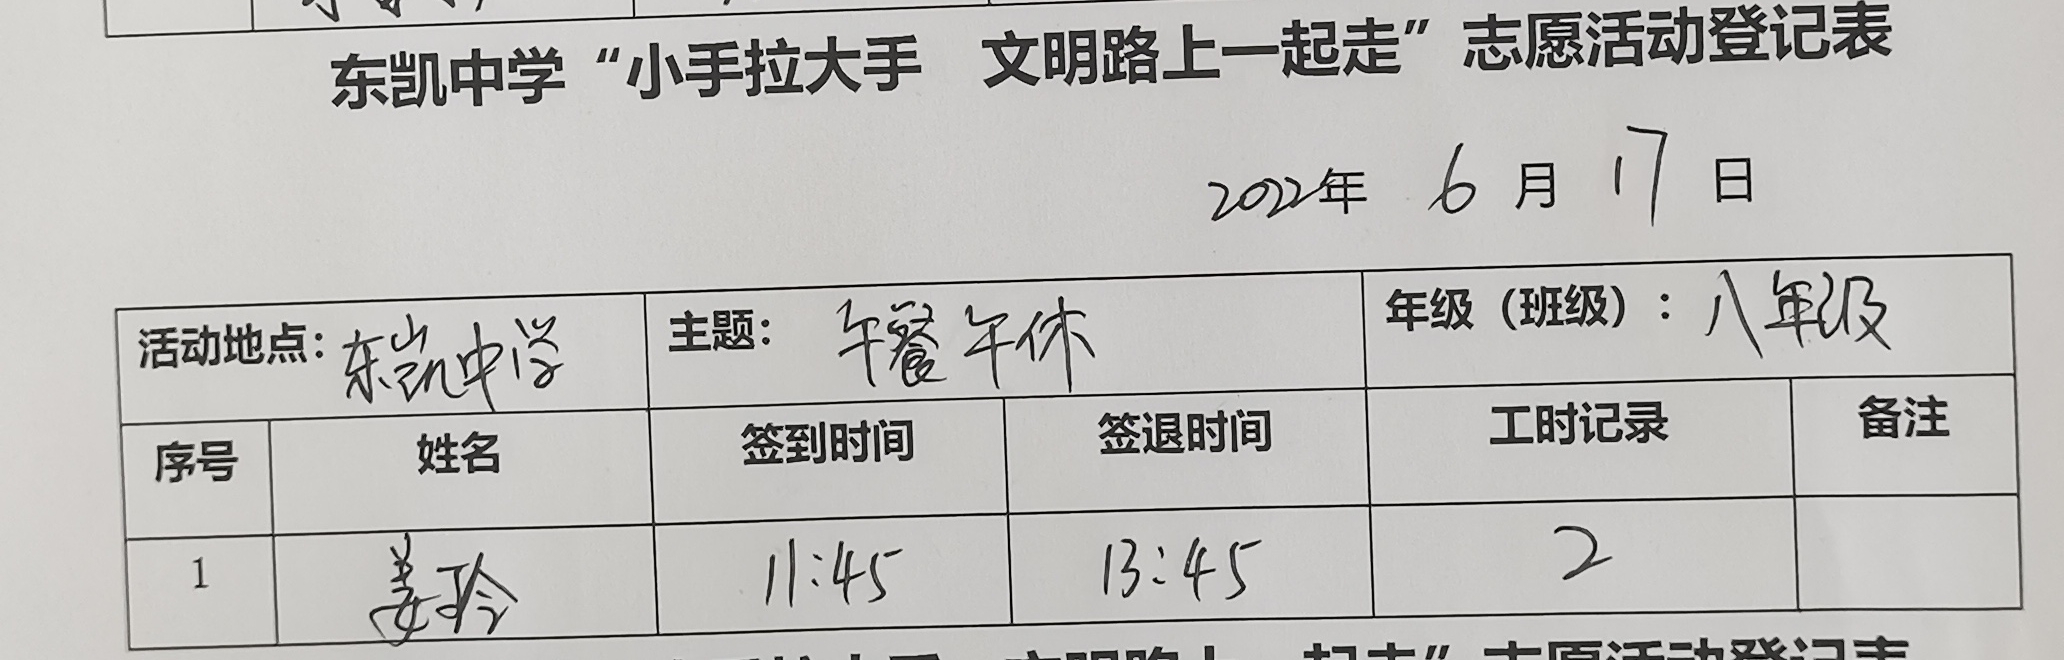 东凯中学“小手拉大手 文明路上一起走”志愿活动登记表
2022年 6 月 17 日
活动地点：东凯中学 主题： 午餐午休 年级（班级）：八年级
序号 姓名 签到时间 签退时间 工时记录 备注
1 姜玲 11:45 13:45 2
文明路上一起走”志愿活动登记表